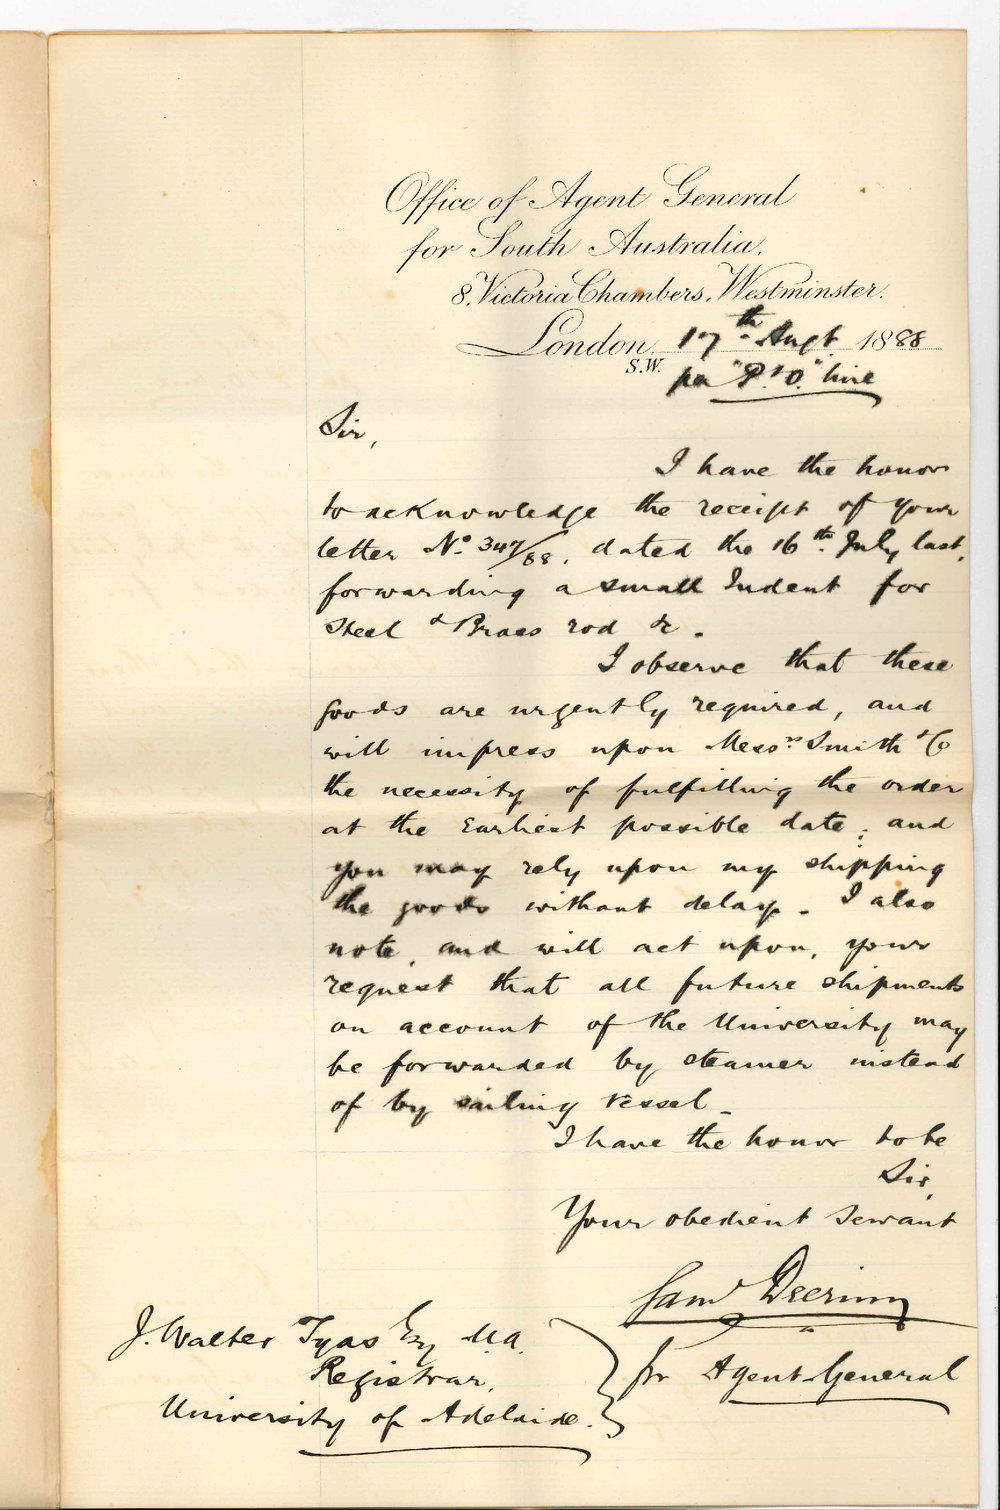 Office of Agent General
for South Australia,
8, Victoria Chambers, Westminster.
London, 17th Augt. 1888
S.W.
per "P. & O." line
Sir,
I have the honor
to acknowledge the receipt of your
letter No. 347/88, dated the 16th July last,
forwarding a small Indent for
Steel & Brass rod &c.
I observe that these
goods are urgently required, and
will impress upon Messrs. Smith & Co
the necessity of fulfilling the order
at the Earliest possible date; and
you may rely upon my shipping
the goods without delay. I also
note, and will act upon, your
request that all future shipments
on account of the University may
be forwarded by steamer instead
of by sailing vessel.
I have the honor to be
Sir,
Your obedient Servant
Saml Deering
for Agent-General
J. Walter Tyas Esq M.A.
Registrar,
University of Adelaide.